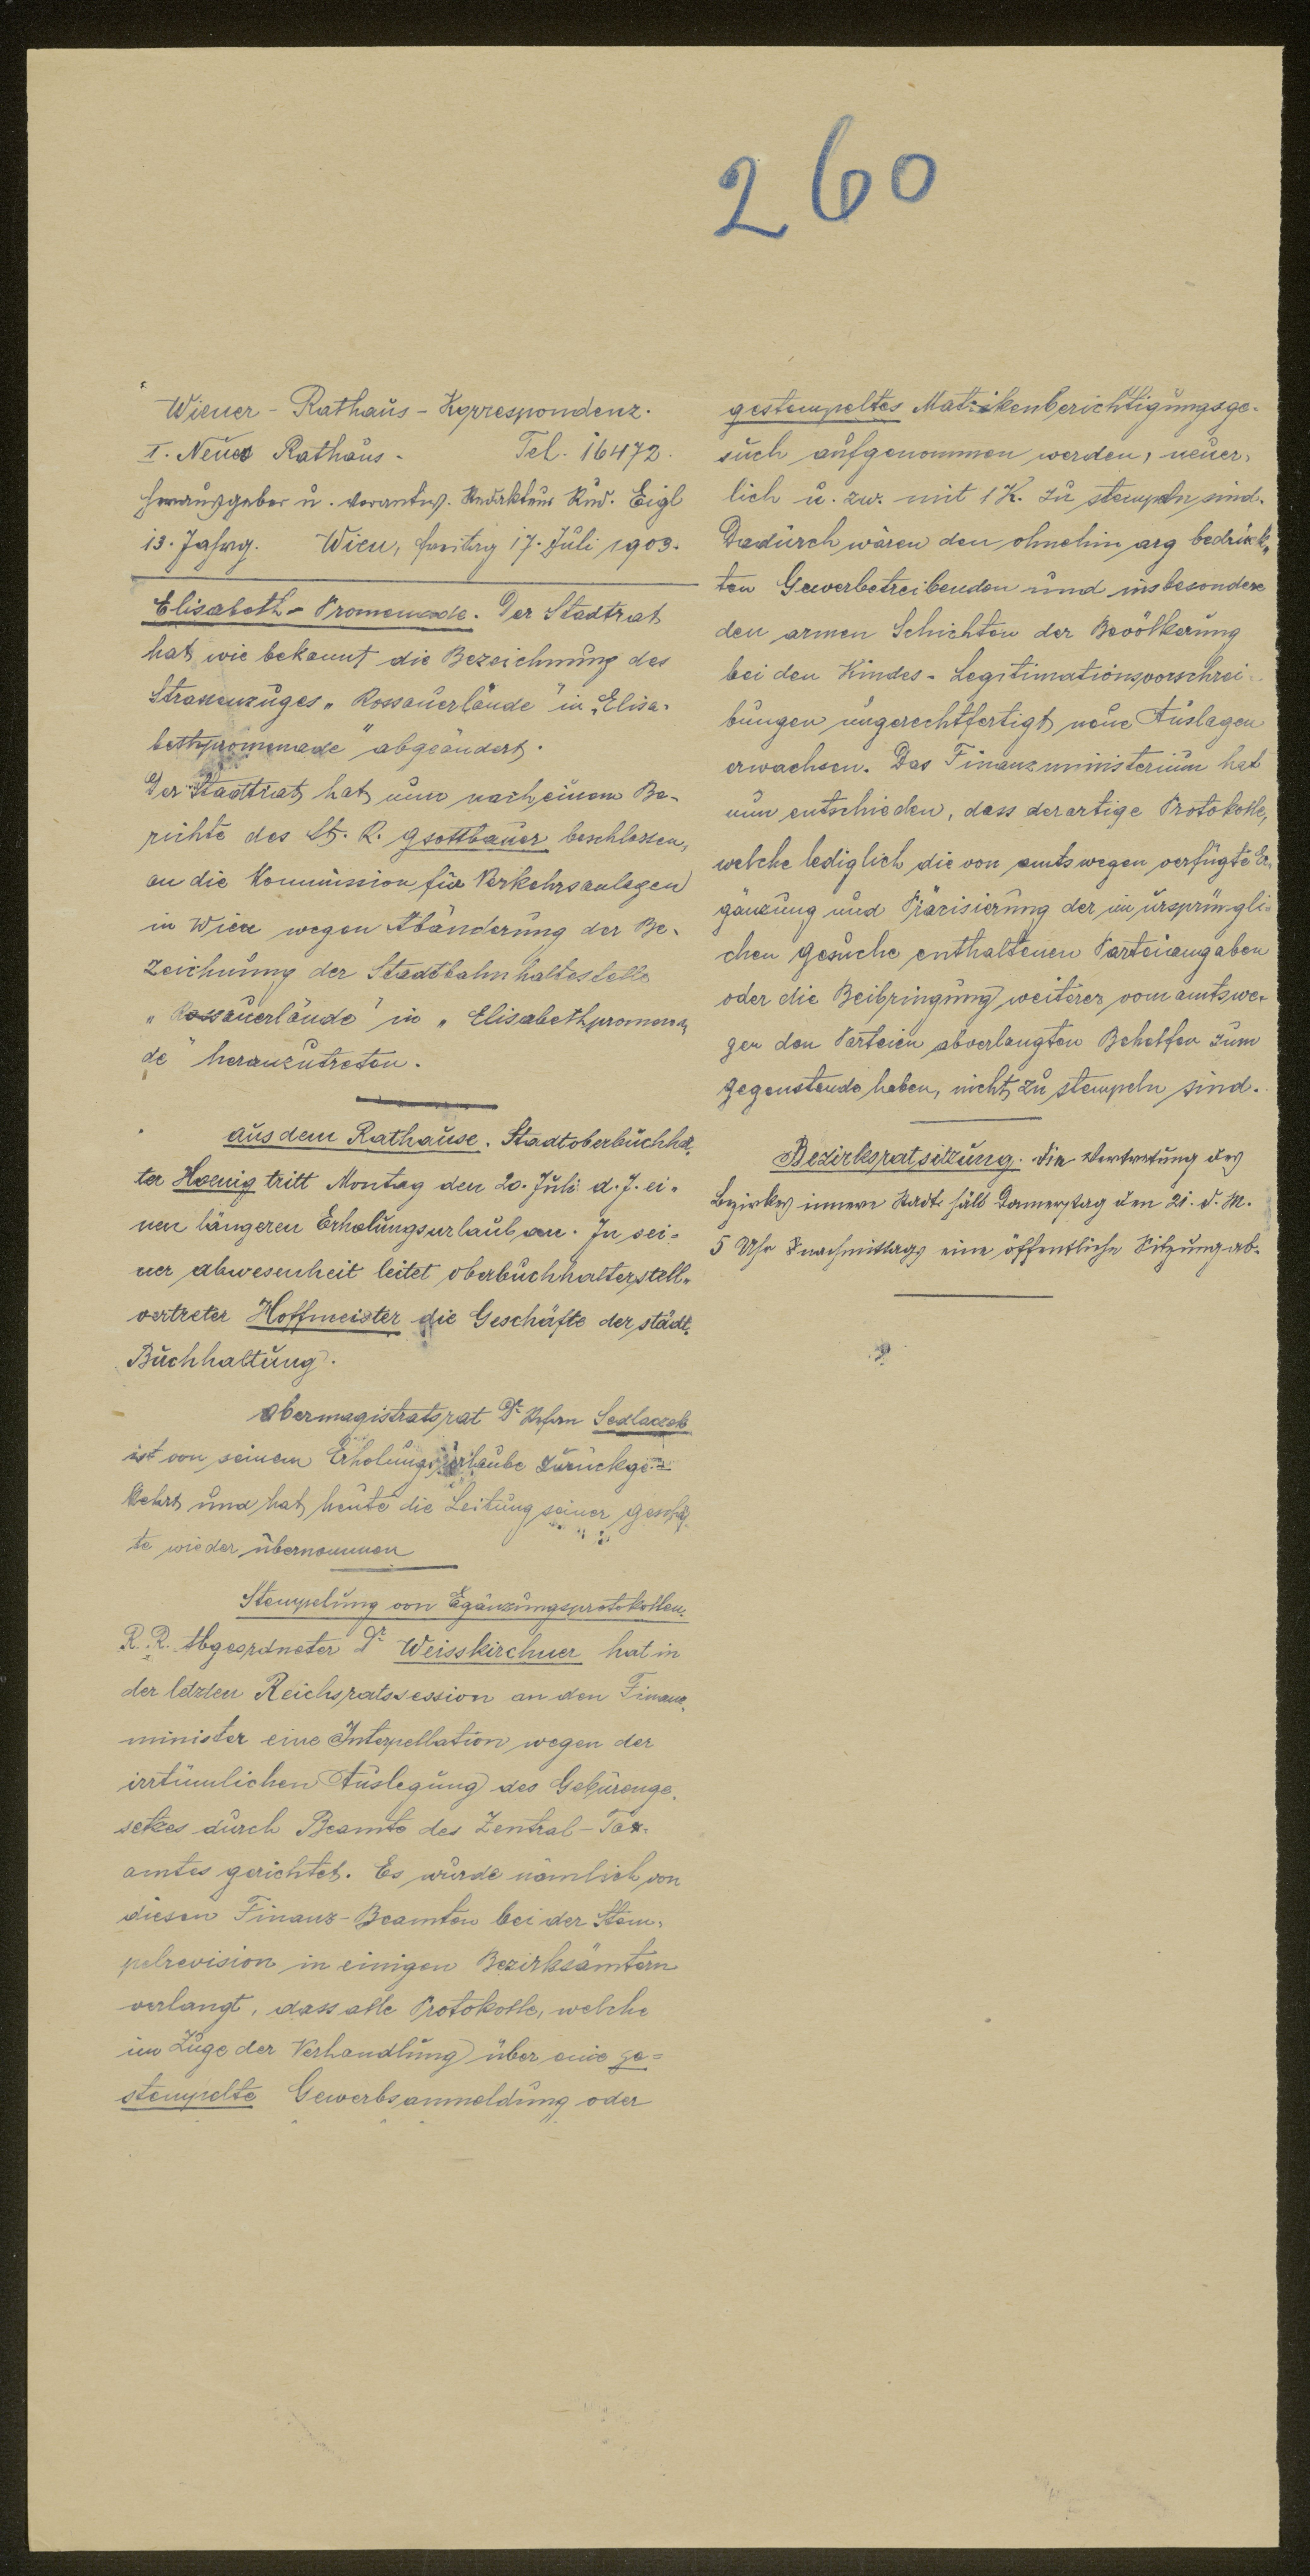 260
Wiener - Rathaus - Korrespondenz.
I. Neues Rathaus - Tel. 16472.
Herausgeber u. verantw. Redakteur Rud. Eigl
13. Jahrg. Wien, Freitag 17. Juli 1903.
Elisabeth - Promenade. Der Stadtrat
hat, wie bekannt die Bezeichnung des
Strassenzuges „Rossauerlände" in „Elisa-
bethpromenade" abgeändert.
Der Stadtrat hat nun nach einem Be-
richte des St. R. Gsottbauer beschlossen,
an die Kommission für Verkehrsanlagen
in Wien wegen Abänderung der Be-
zeichnung der Stadtbahnhaltestelle
„Rossauerlände" in „Elisabethpromena-
de" heranzutreten.
Aus dem Rathause. Stadtoberbuchhal-
ter Hoenig tritt Montag den 20. Juli d. J. ei-
nen längeren Erholungsurlaub an. In sei-
ner Abwesenheit leitet Oberbuchhalterstell-
vertreter Hoffmeister die Geschäfte der städt.
Buchhaltung.
Obermagistratsrat Dr Sedlaczek
ist von seinem Erholungsurlaube zurückge-
kehrt und hat heute die Leitung seiner Geschäf-
te wieder übernommen
Stempelung von Egänzungsprotokollen.
R. R. Abgeordneter Dr Weisskirchner hat in
der letzten Reichsratssession an den Finanz-
minister eine Interpellation wegen der
irrtümlichen Auslegung des Gebürenge-
setzes durch Beamte des Zentral - Tax-
amtes gerichtet. Es wurde nämlich von
diesen Finanz - Beamten bei der Stem-
pelrevision in einigen Bezirksämtern
verlangt, dass alle Protokolle, welche
im Zuge der Verhandlung über eine ge-
stempelte Gewerbsanmeldung oder
gestempeltes Matrikenberichtigungsge-
such aufgenommen werden, neuer-
lich u. zw. mit 1 K. zu stempeln sind.
Dadurch wären den ohnehin arg bedrück-
ten Gewerbetreibenden und insbesondere
den armen Schichten der Bevölkerung
bei den Kindes - Legitimationsvorschrei-
bungen ungerechtfertigt neue Auslagen
erwachsen. Das Finanzministerium hat
nun entschieden, dass derartige Protokolle,
welche lediglich die von amtswegen verfügte Er-
gänzung und Präzisierung der im ursprüngli-
chen Gesuche enthaltenen Parteiangaben
oder die Beibringung weiterer vom amtswe-
gen den Parteien abverlangten Behelfen zum
Gegenstande haben, nicht zu stempeln sind.
Bezirksratsitzung. Die Vertretung des
Bezirkes innere Stadt hält Donnerstag den 21. d. M.
5 Uhr nachmittags eine öffentliche Sitzung ab.